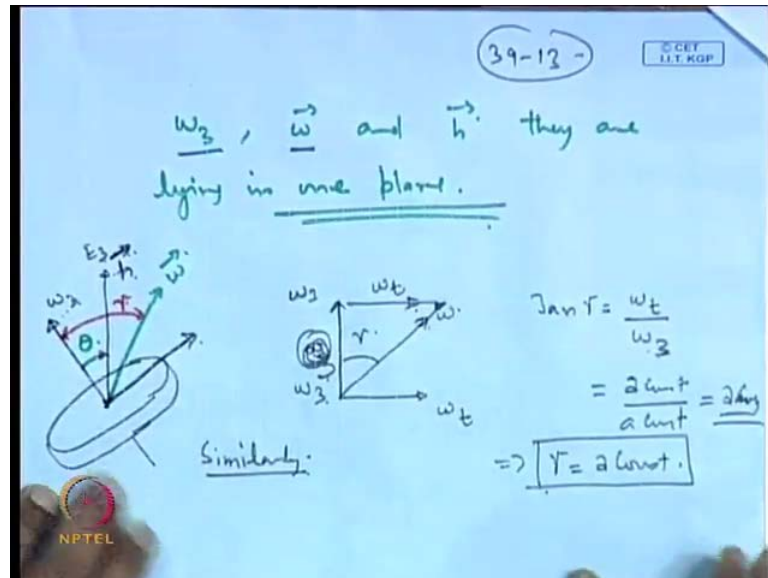 39-13-
© CET
I.I.T. KGP
ω3, ω⃗ and h⃗ they are
lying in one plane.
E3
h
ω3
ω⃗
γ
θ
ω3
ωt
ω
γ
ω3
ωt
Tan γ = ωt / ω3
= a Const / a Const = a Cons
Similarly.
=> γ = a Const.
NPTEL